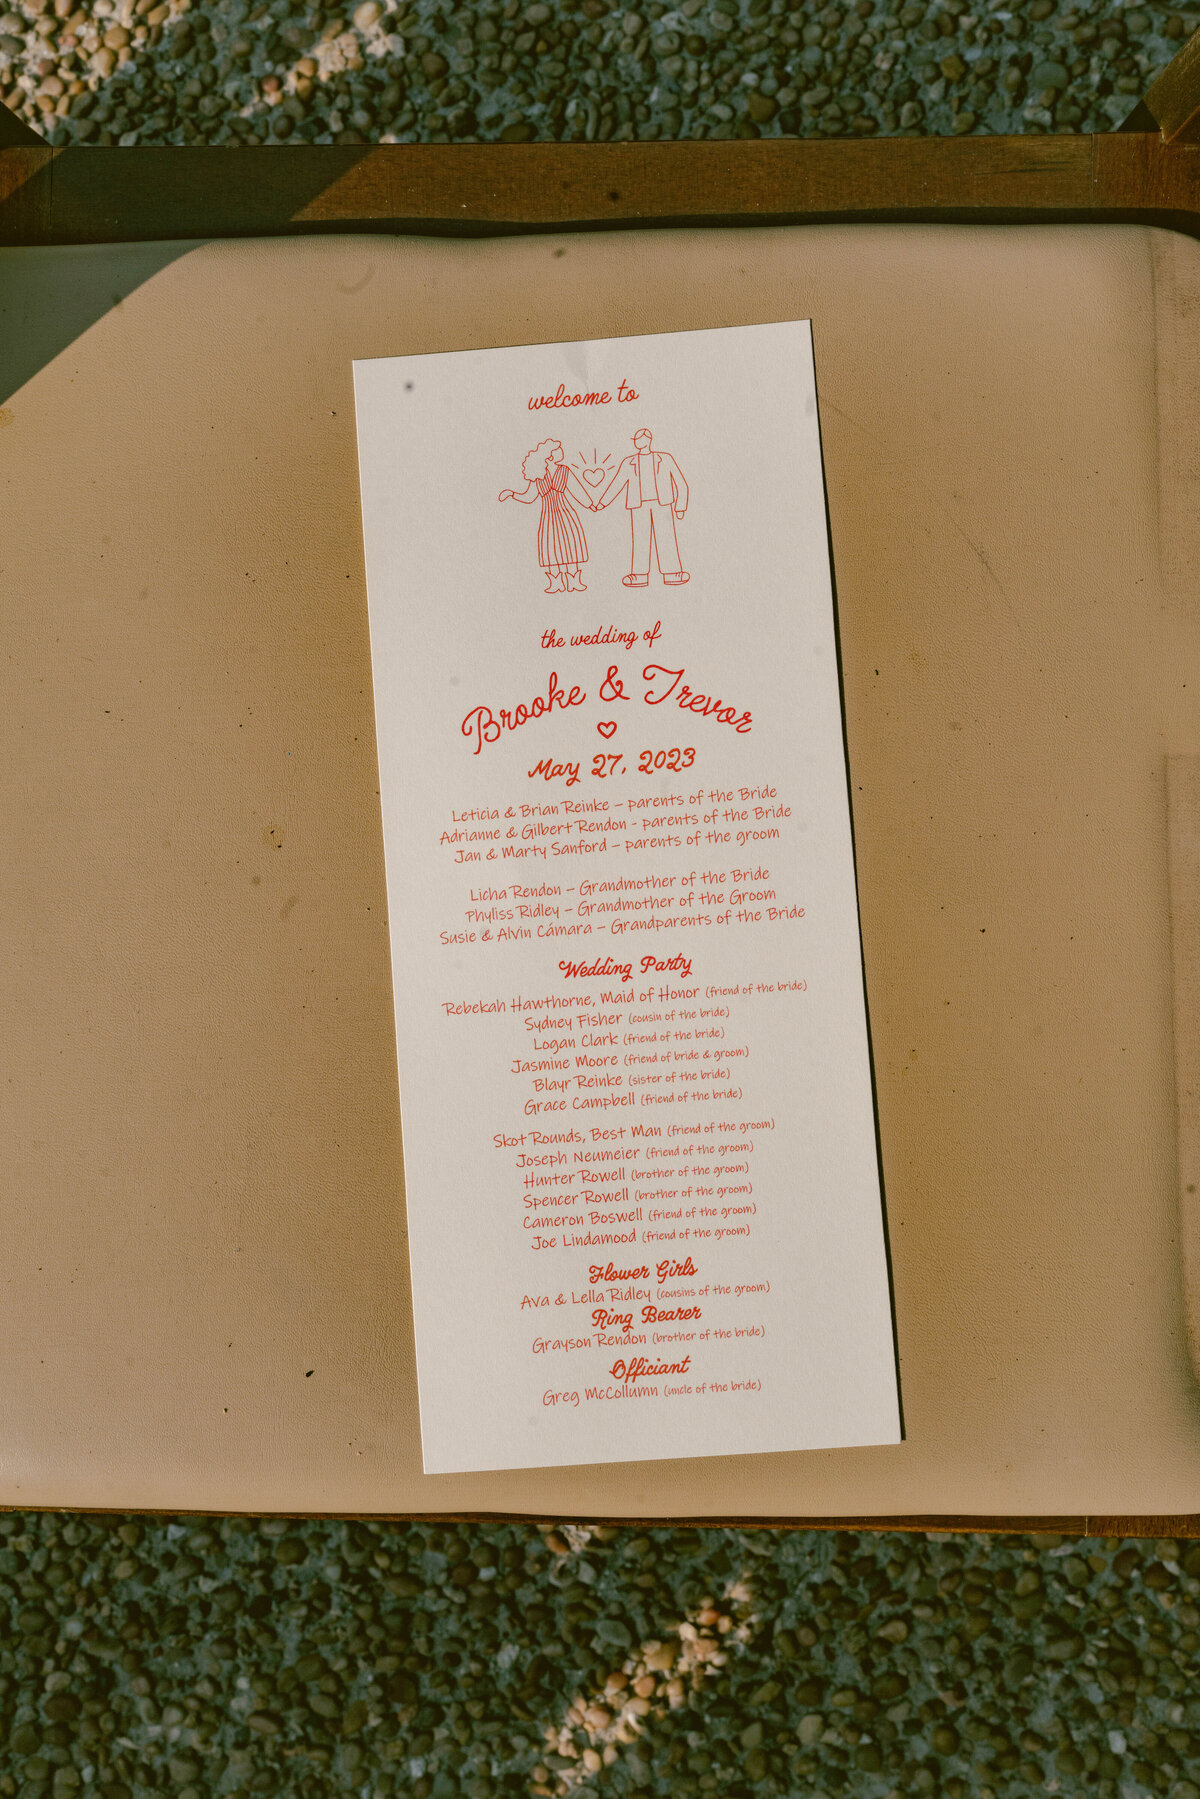 welcome to
the wedding of
Brooke & Trevor
May 27, 2023
Leticia & Brian Reinke – parents of the Bride
Adrianne & Gilbert Rendon - parents of the Bride
Jan & Marty Sanford – parents of the groom
Licha Rendon – Grandmother of the Bride
Phyliss Ridley – Grandmother of the Groom
Susie & Alvin Cámara – Grandparents of the Bride
Wedding Party
Rebekah Hawthorne, Maid of Honor (friend of the bride)
Sydney Fisher (cousin of the bride)
Logan Clark (friend of the bride)
Jasmine Moore (friend of bride & groom)
Blayr Reinke (sister of the bride)
Grace Campbell (friend of the bride)
Skot Rounds, Best Man (friend of the groom)
Joseph Neumeier (friend of the groom)
Hunter Rowell (brother of the groom)
Spencer Rowell (brother of the groom)
Cameron Boswell (friend of the groom)
Joe Lindamood (friend of the groom)
Flower Girls
Ava & Lella Ridley (cousins of the groom)
Ring Bearer
Grayson Rendon (brother of the bride)
Officiant
Greg McCollumn (uncle of the bride)